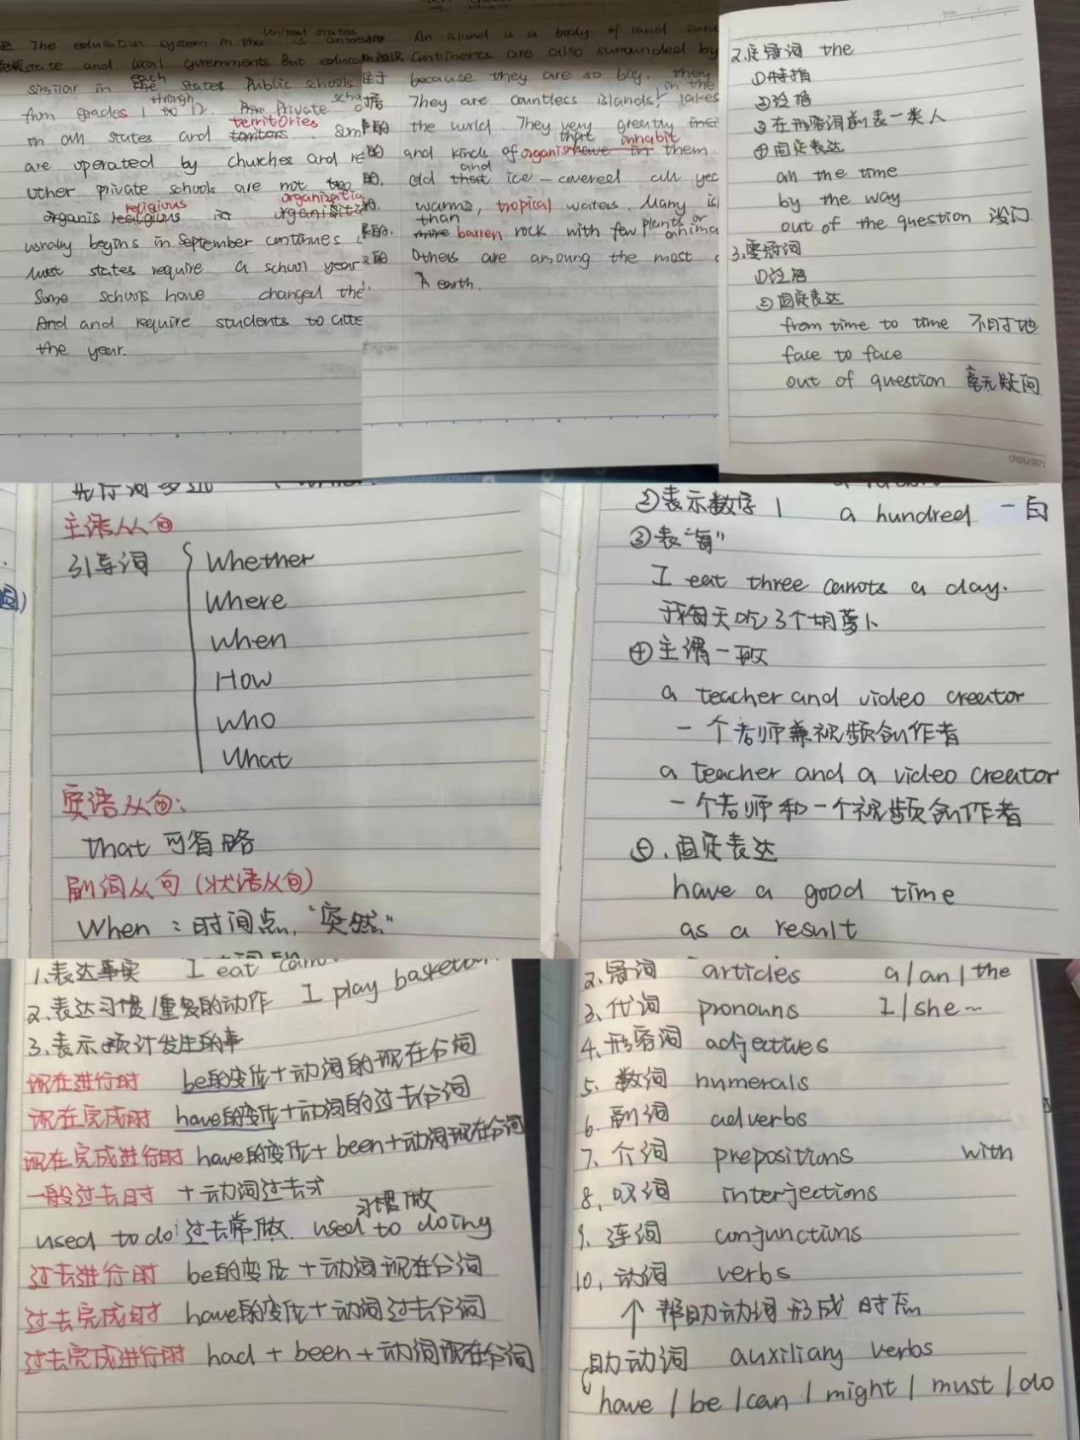 The education system in the United States is
state and local governments. But
similar in each states Public schools
from grades 1 through 12. Private
in all states and territories
are operated by churches and
Other private schools are not
religious organis
usually begins in September continues
Most states require a school year
Some schools have changed the
And and require students to
the year.
An island is a body of land
Continents are also surrounded by
because they are so big. They
They are countless islands in the
the world. They very greatly
and kinds of organis that inhabit them.
and ice-covered all
warms, tropical waters. Many
than barren rock with few plants or
Others are amoung the most
earth.
2.定冠词 the
①特指
②泛指
③在形容词前表一类人
④固定表达
all the time
by the way
out of the question 没门
3.零冠词
①泛指
②固定表达
from time to time 不时地
face to face
out of question 毫无疑问
主语从句
引导词
Whether
Where
When
How
Who
What
宾语从句:
that 可省略
副词从句(状语从句)
When:时间点,"突然"
②表示数字1 a hundred 一百
③表"每"
I eat three carrots a day.
我每天吃3个胡萝卜
④主谓一致
a teacher and video creator
一个老师兼视频创作者
a teacher and a video creator
一个老师和一个视频创作者
⑤.固定表达
have a good time
as a result
1.表达事实 I eat
2.表达习惯/重复的动作 I play basketball
3.表示预计发生的事
现在进行时 be的变位+动词的现在分词
现在完成时 have的变位+动词的过去分词
现在完成进行时 have的变位+been+动词现在分词
一般过去时 +动词过去式
习惯做
used to do 过去常做 used to doing
过去进行时 be的变位+动词现在分词
过去完成时 have的变位+动词过去分词
过去完成进行时 had+been+动词现在分词
2.冠词 articles a/an/the
3.代词 pronouns I/she~
4.形容词 adjectives
5.数词 numerals
6.副词 adverbs
7.介词 prepositions with
8.叹词 interjections
9.连词 conjunctions
10.动词 verbs
↑帮助动词形成时态
助动词 auxiliary verbs
have/be/can/might/must/do